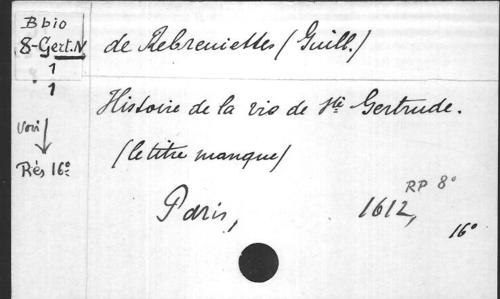 B bio
8-Gert.N
1
1
de Rebreviettes (Guill.)
Histoire de la vie de Ste Gertrude.
(le titre manque)
Voir
Rés 16º
RP 8º
Paris, 1612,
16º